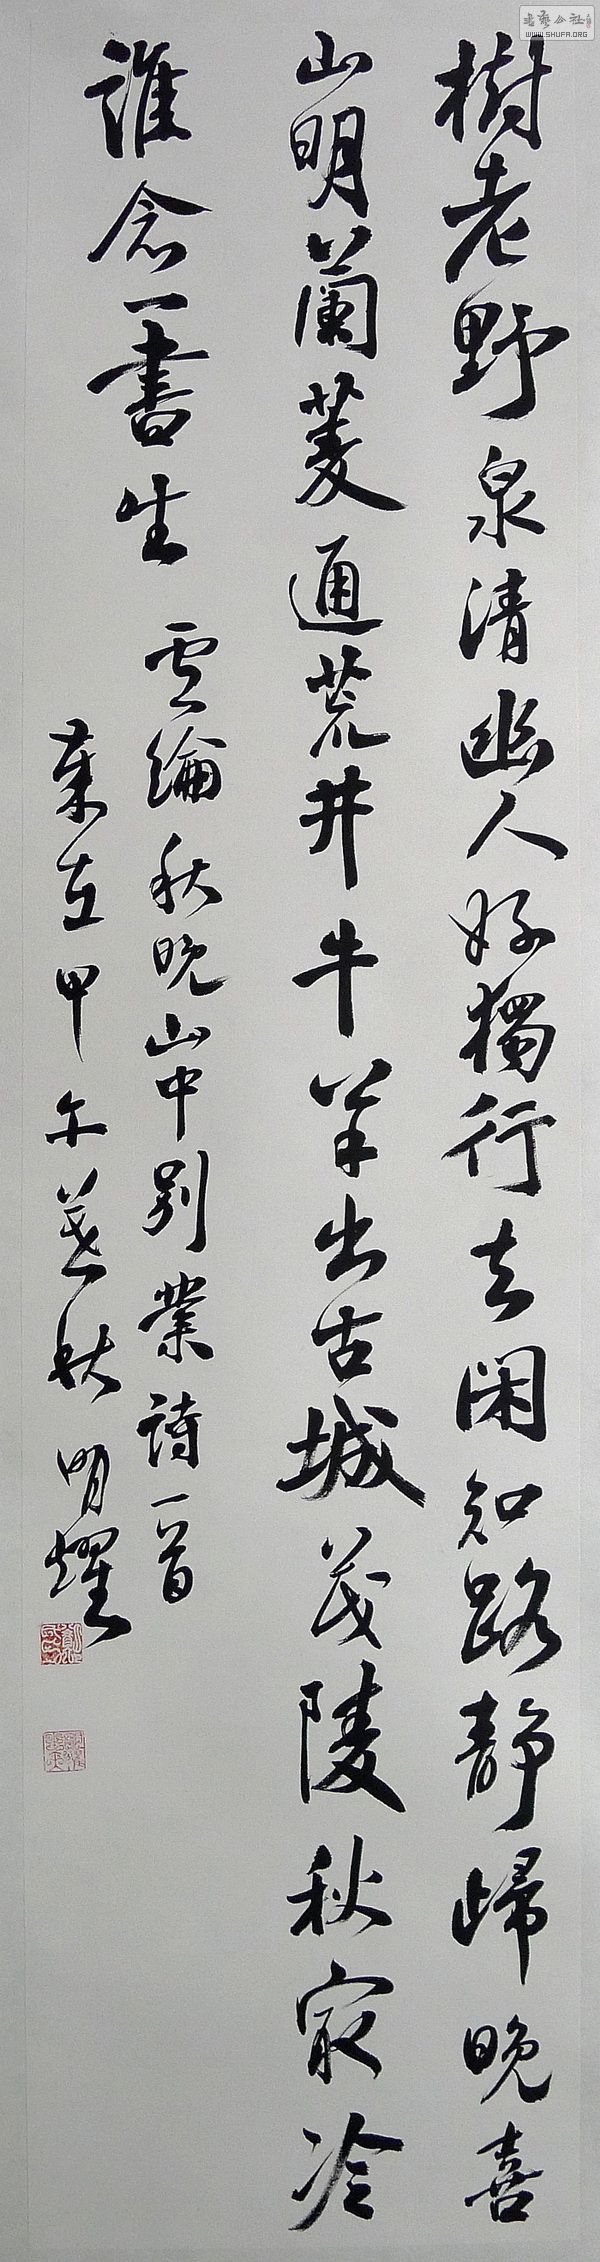 樹老野泉清幽人好獨行去閑知路靜歸晚喜
山明蘭菱通荒井牛羊出古城茂陵秋最冷
誰念一書生 盧綸秋晚山中別業詩一首
歲在甲午暮秋明耀
書藝公社
WWW.SHUFA.ORG